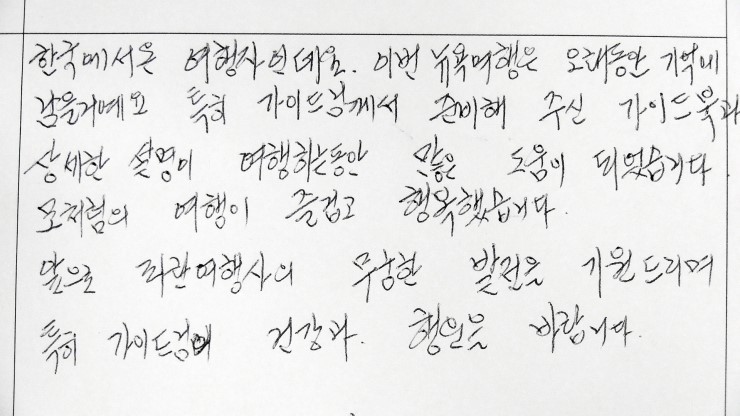 한국에서온 여행자인데요. 이번 뉴욕여행은 오래동안 기억에
남을거예요 특히 가이드님께서 준비해 주신 가이드북과
상세한 설명이 여행하는동안 많은 도움이 되었습니다.
모처럼의 여행이 즐겁고 행복했습니다.
앞으로 여행사의 무궁한 발전을 기원드리며
특히 가이드님의 건강과. 행운을 바랍니다.